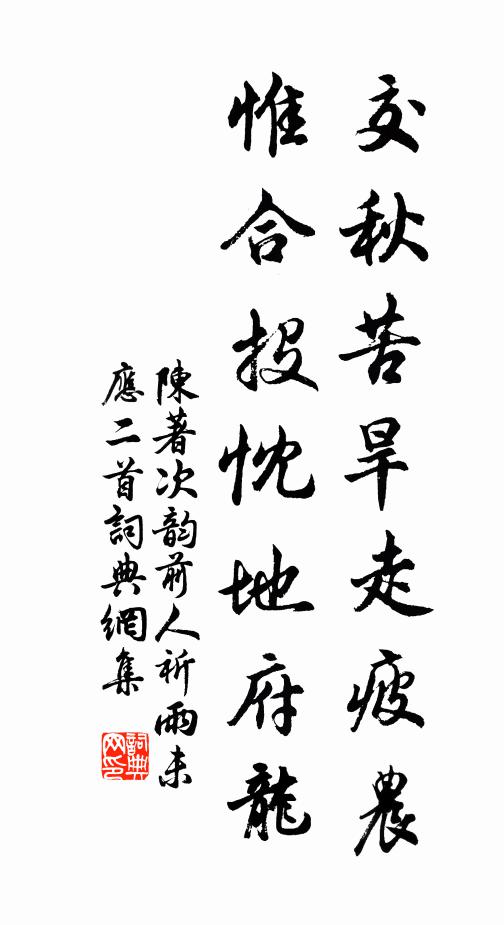 交秋苦旱走疲農
惟合投忱地府龍
陳著次韵前人祈雨未
應二首詞典網集
詞典
网印